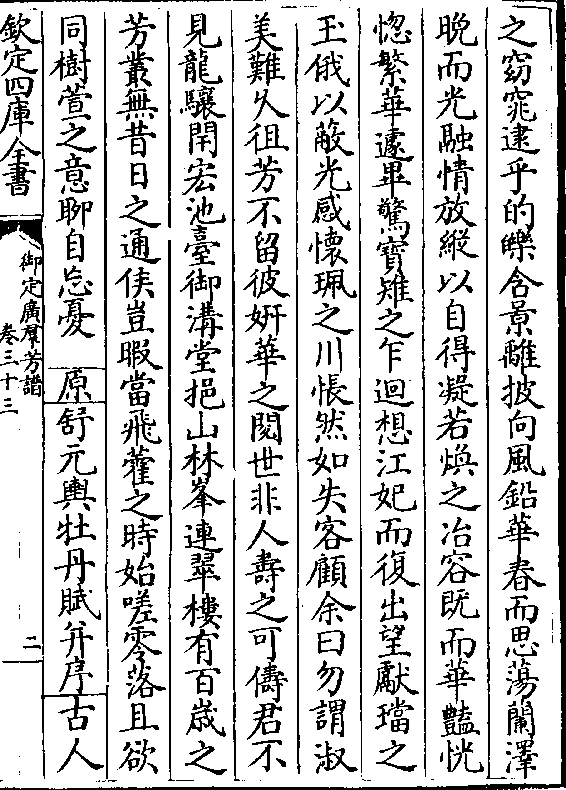 之窈窕逮乎的皪含景離披向風鉛華春而思蕩蘭澤
晚而光融情放縱以自得凝若煥之冶容既而華豔恍
惚繁華遽畢驚寶雉之乍迴想江妃而復出望獻璫之
玉俄以蔽光感懷珮之川悵然如失客顧余曰勿謂淑
美難久徂芳不留彼姸華之閱世非人壽之可儔君不
見龍驤閈宏池臺御溝堂挹山林峯連翠樓有百歲之
芳叢無昔日之通侯豈暇當飛藿之時始嗟零落且欲
同樹萱之意聊自忘憂 原舒元輿牡丹賦并序古人
欽定四庫全書
御定廣羣芳譜
卷三十三
二